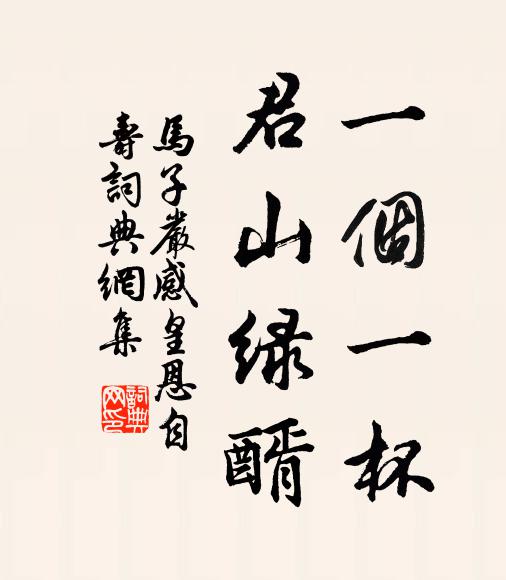 一個一杯
君山绿醑
馬子嚴感皇恩自
壽詞典網集
詞典
网印